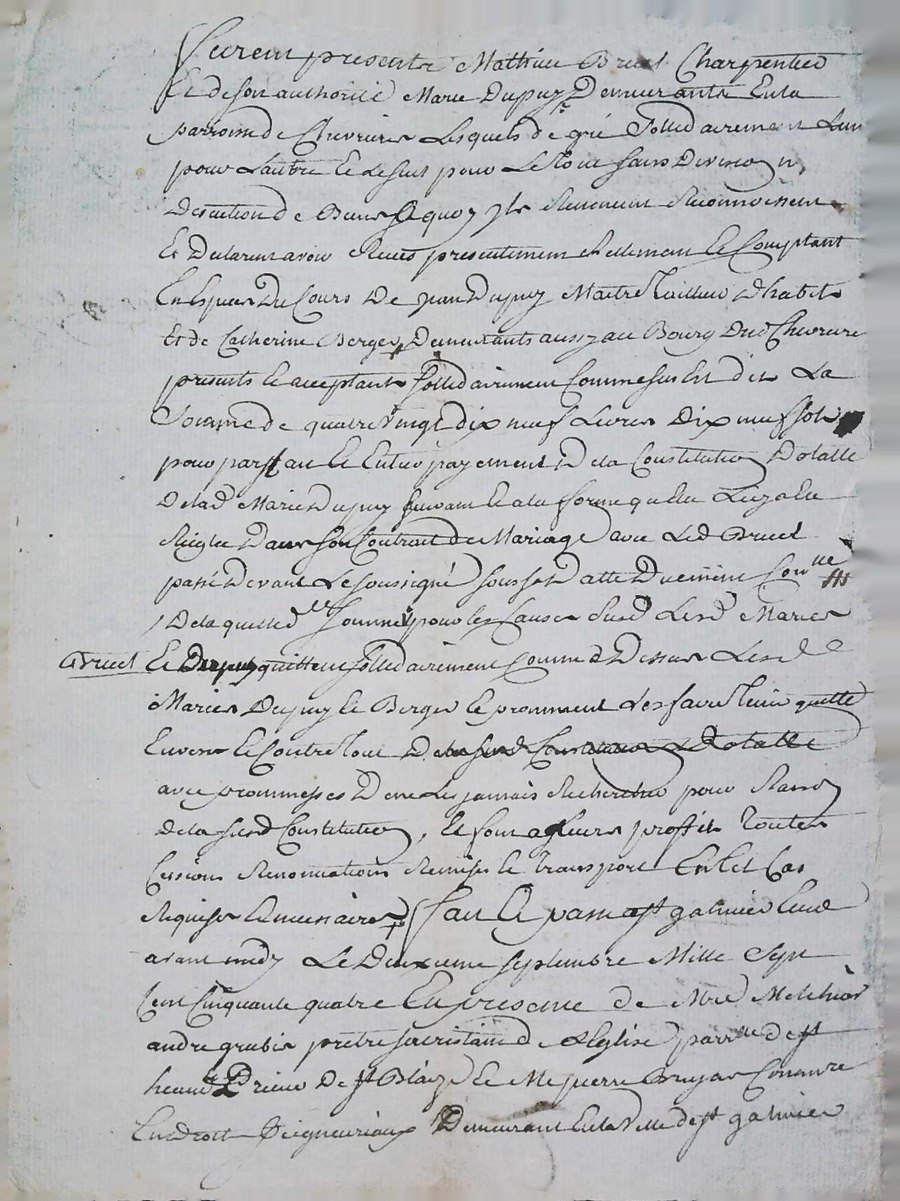 furent presents Mathieu Bruel Charpentier
Et de son authorité Marie Dupuy Demeurants En la
parroisse de Chevrieres Lesquels de gré sollidairement Lun
pour Lautre Et Le seul pour Le Tout sans Division n
Discution de Biens A quoy ils Renoncent Reconnoissent
Et Declarent avoir Reçus presentement Rellement Et Comptant
En Especes Du Cours De Jean Dupuy Maitre Tailleur D'habits
Et de Catherine Berger Demeurants aussy au Bourg Dud Chevriere
presents Et acceptants sollidairement Comme sus Est dit La
Somme de quatre vingt dix neuf Livres Dix neuf sols
pour parfait Et Entier payement De la Constitution Dotalle
De lad Marie Dupuy suivant Et a la forme quelle Luy a Ete
Reiglee Dans son Contrant de Mariage avec Led Bruel
passé Devant Le soussigné sous sa datte Duement Con.lle
De laquelle de somme pour les Causes Susd Lesd Maries
Bruel Et Dupuy quittent sollidairement Comme Dessus Lesd
Maries Dupuy Et Berger Et promment Les faire Tenir quitte
Envers Et Contre Tous De la susd Constitution Dotalle
avec promesses De ne Les jamais Rechercher pour Raison
De la susd Constitution, Et font a Leurs proffits Toutes
Cessions Renonciations Remises Et transport En tel Cas
Requises Et necessaires fait Et passé a st galmier Etude
avant midy Le Deuxieme septembre Mille Sept
Cent Cinquante quatre En presence de Mre Melchior
andre grubis pretre sacristain de LEglise parr.lle de st
heand Prieur De st Blaize Et Me pierre Bruyas Commre
En Droit Seigneuriaux Demeurant En la ville de st galmier